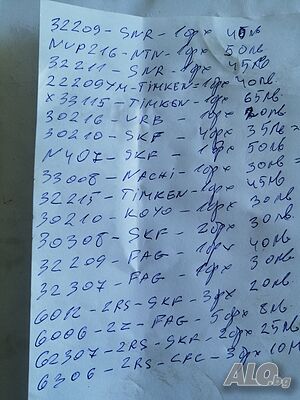 32209 - SNR - 1бр x 45лв
NUP216 - NTN - 1бр x 50лв
32211 - SNR - 1бр x 45лв
22209YM - TIMKEN - 1бр x 40лв.
X33115 - TIMKEN - 1бр 65лв.
30216 - URB - 1бр x 20лв
30210 - SKF - 4бр x 35лв =
N407 - SKF - 1бр 50лв
33008 - NACHI - 1бр x 30лв =
32215 - TIMKEN - 1бр x 45лв
30210 - KOYO - 1бр x 30лв.
30308 - SKF - 2бр x 30лв.
32209 - FAG - 1бр x 40лв
32307 - FAG - 1бр x 30лв.
6012 - 2RS - SKF - 3бр x 20лв.
6006 - 2Z - FAG - 5бр x 8лв.
62307 - 2RS - SKF - 2бр x 25лв
6306 - 2RS - CFC - 3бр x 10
ALO.bg